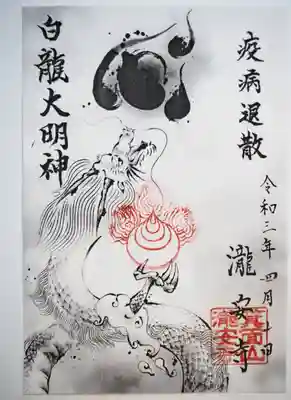 疫病退散
令和三年四月
瀧安寺
箕面山
瀧安寺
白龍大明神